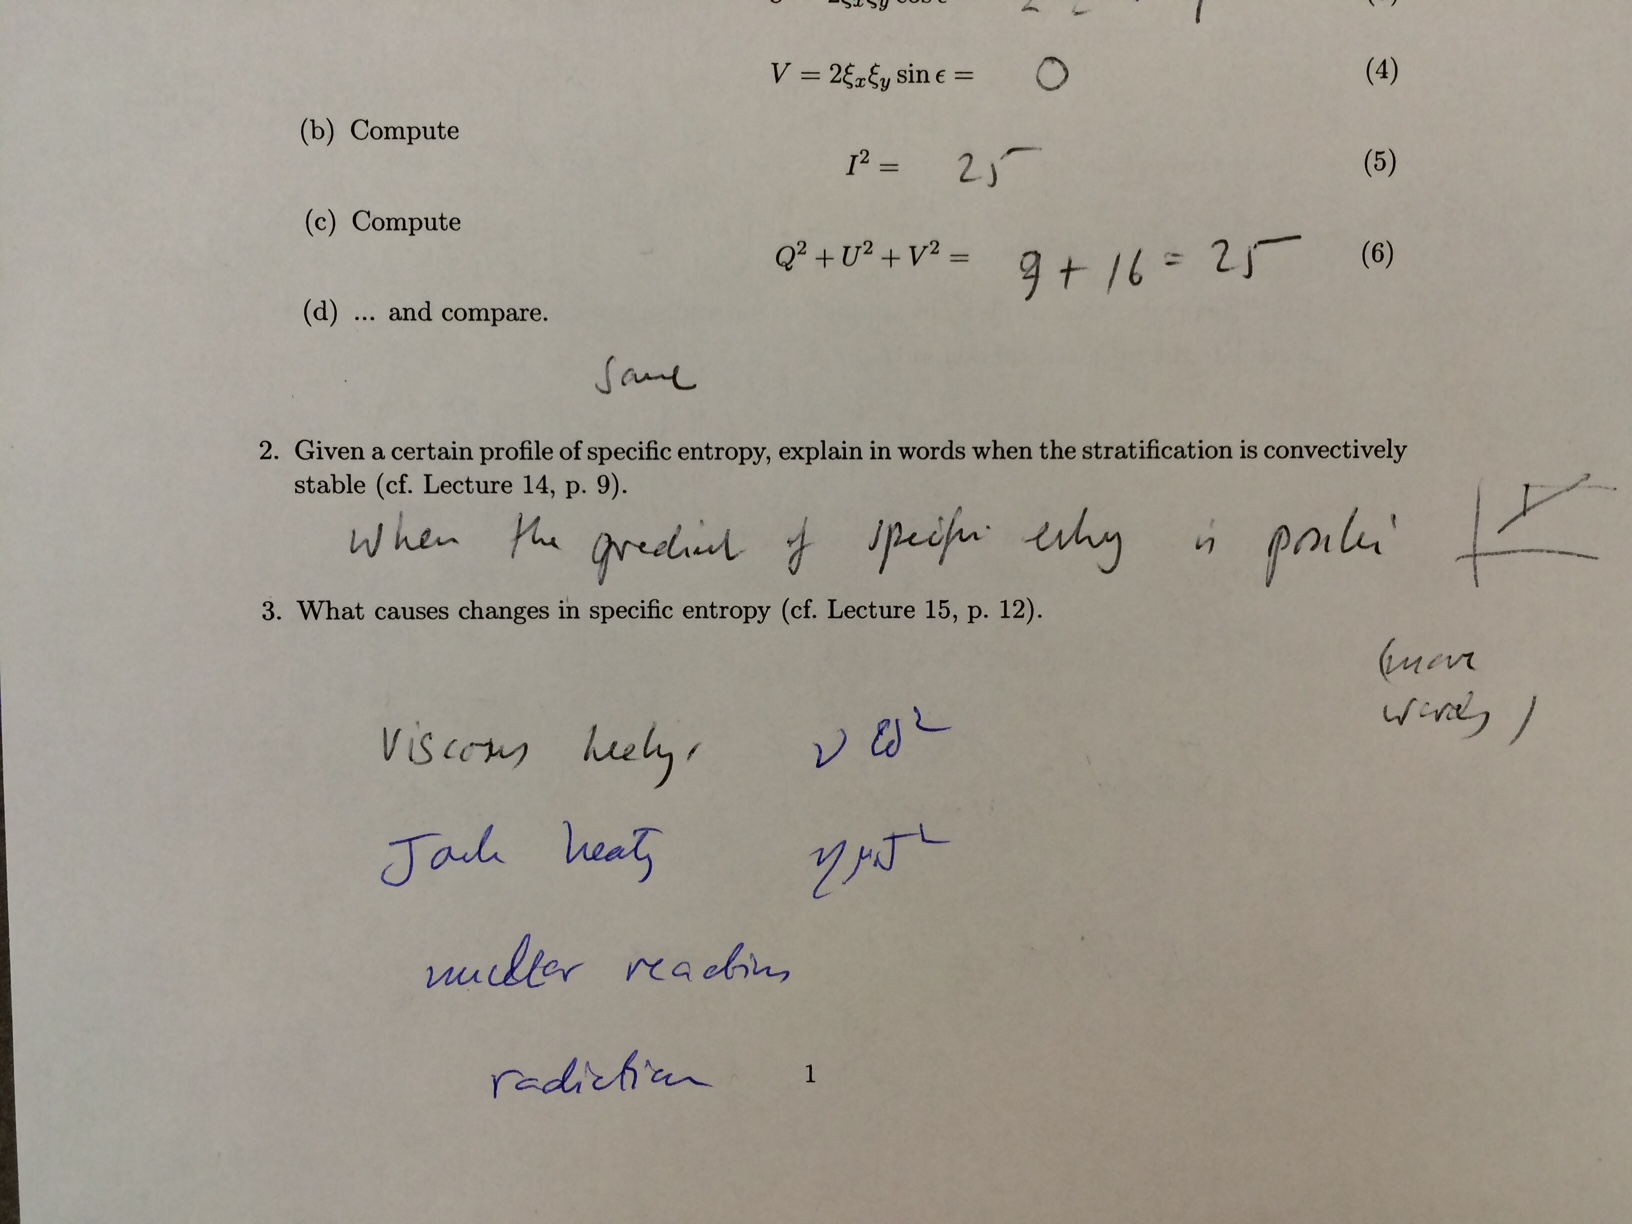 V = 2ξₓξᵧ sin ϵ = 0 (4)
(b) Compute
I² = 25 (5)
(c) Compute
Q² + U² + V² = 9 + 16 = 25 (6)
(d) ... and compare.
Same
2. Given a certain profile of specific entropy, explain in words when the stratification is convectively
stable (cf. Lecture 14, p. 9).
When the gradient of specific is
3. What causes changes in specific entropy (cf. Lecture 15, p. 12).
(more
words)
Viscous ν ω²
heatg ημJ²
nuclear reactions
radiation
1